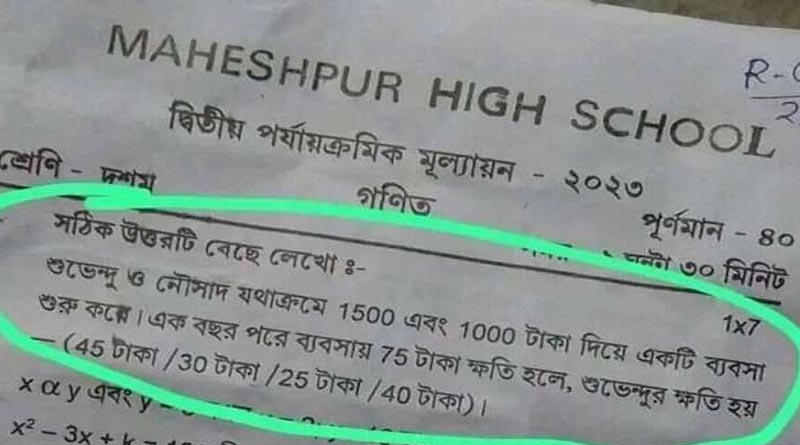 MAHESHPUR HIGH SCHOOL
দ্বিতীয় পর্যায়ক্রমিক মূল্যায়ন - ২০২৩
শ্রেণি - দশম
গণিত
পূর্ণমান - 80
৩০ মিনিট
সঠিক উত্তরটি বেছে লেখো :-
1x7
শুভেন্দু ও নৌসাদ যথাক্রমে 1500 এবং 1000 টাকা দিয়ে একটি ব্যবসা
শুরু করে। এক বছর পরে ব্যবসায় 75 টাকা ক্ষতি হলে, শুভেন্দুর ক্ষতি হয়
— (45 টাকা /30 টাকা /25 টাকা /40 টাকা)।
x α y এবং y
x² – 3x + k